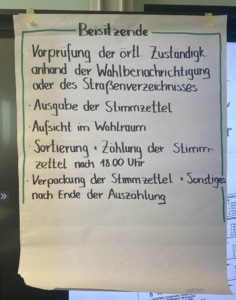 Beisitzende
· Vorprüfung der örtl. Zuständigk.
anhand der Wahlbenachrichtigung
oder des Straßenverzeichnisses
· Ausgabe der Stimmzettel
· Aufsicht im Wahlraum
· Sortierung + Zählung der Stimm-
zettel nach 18:00 Uhr
· Verpackung der Stimmzettel + Sonstiges
nach Ende der Auszählung